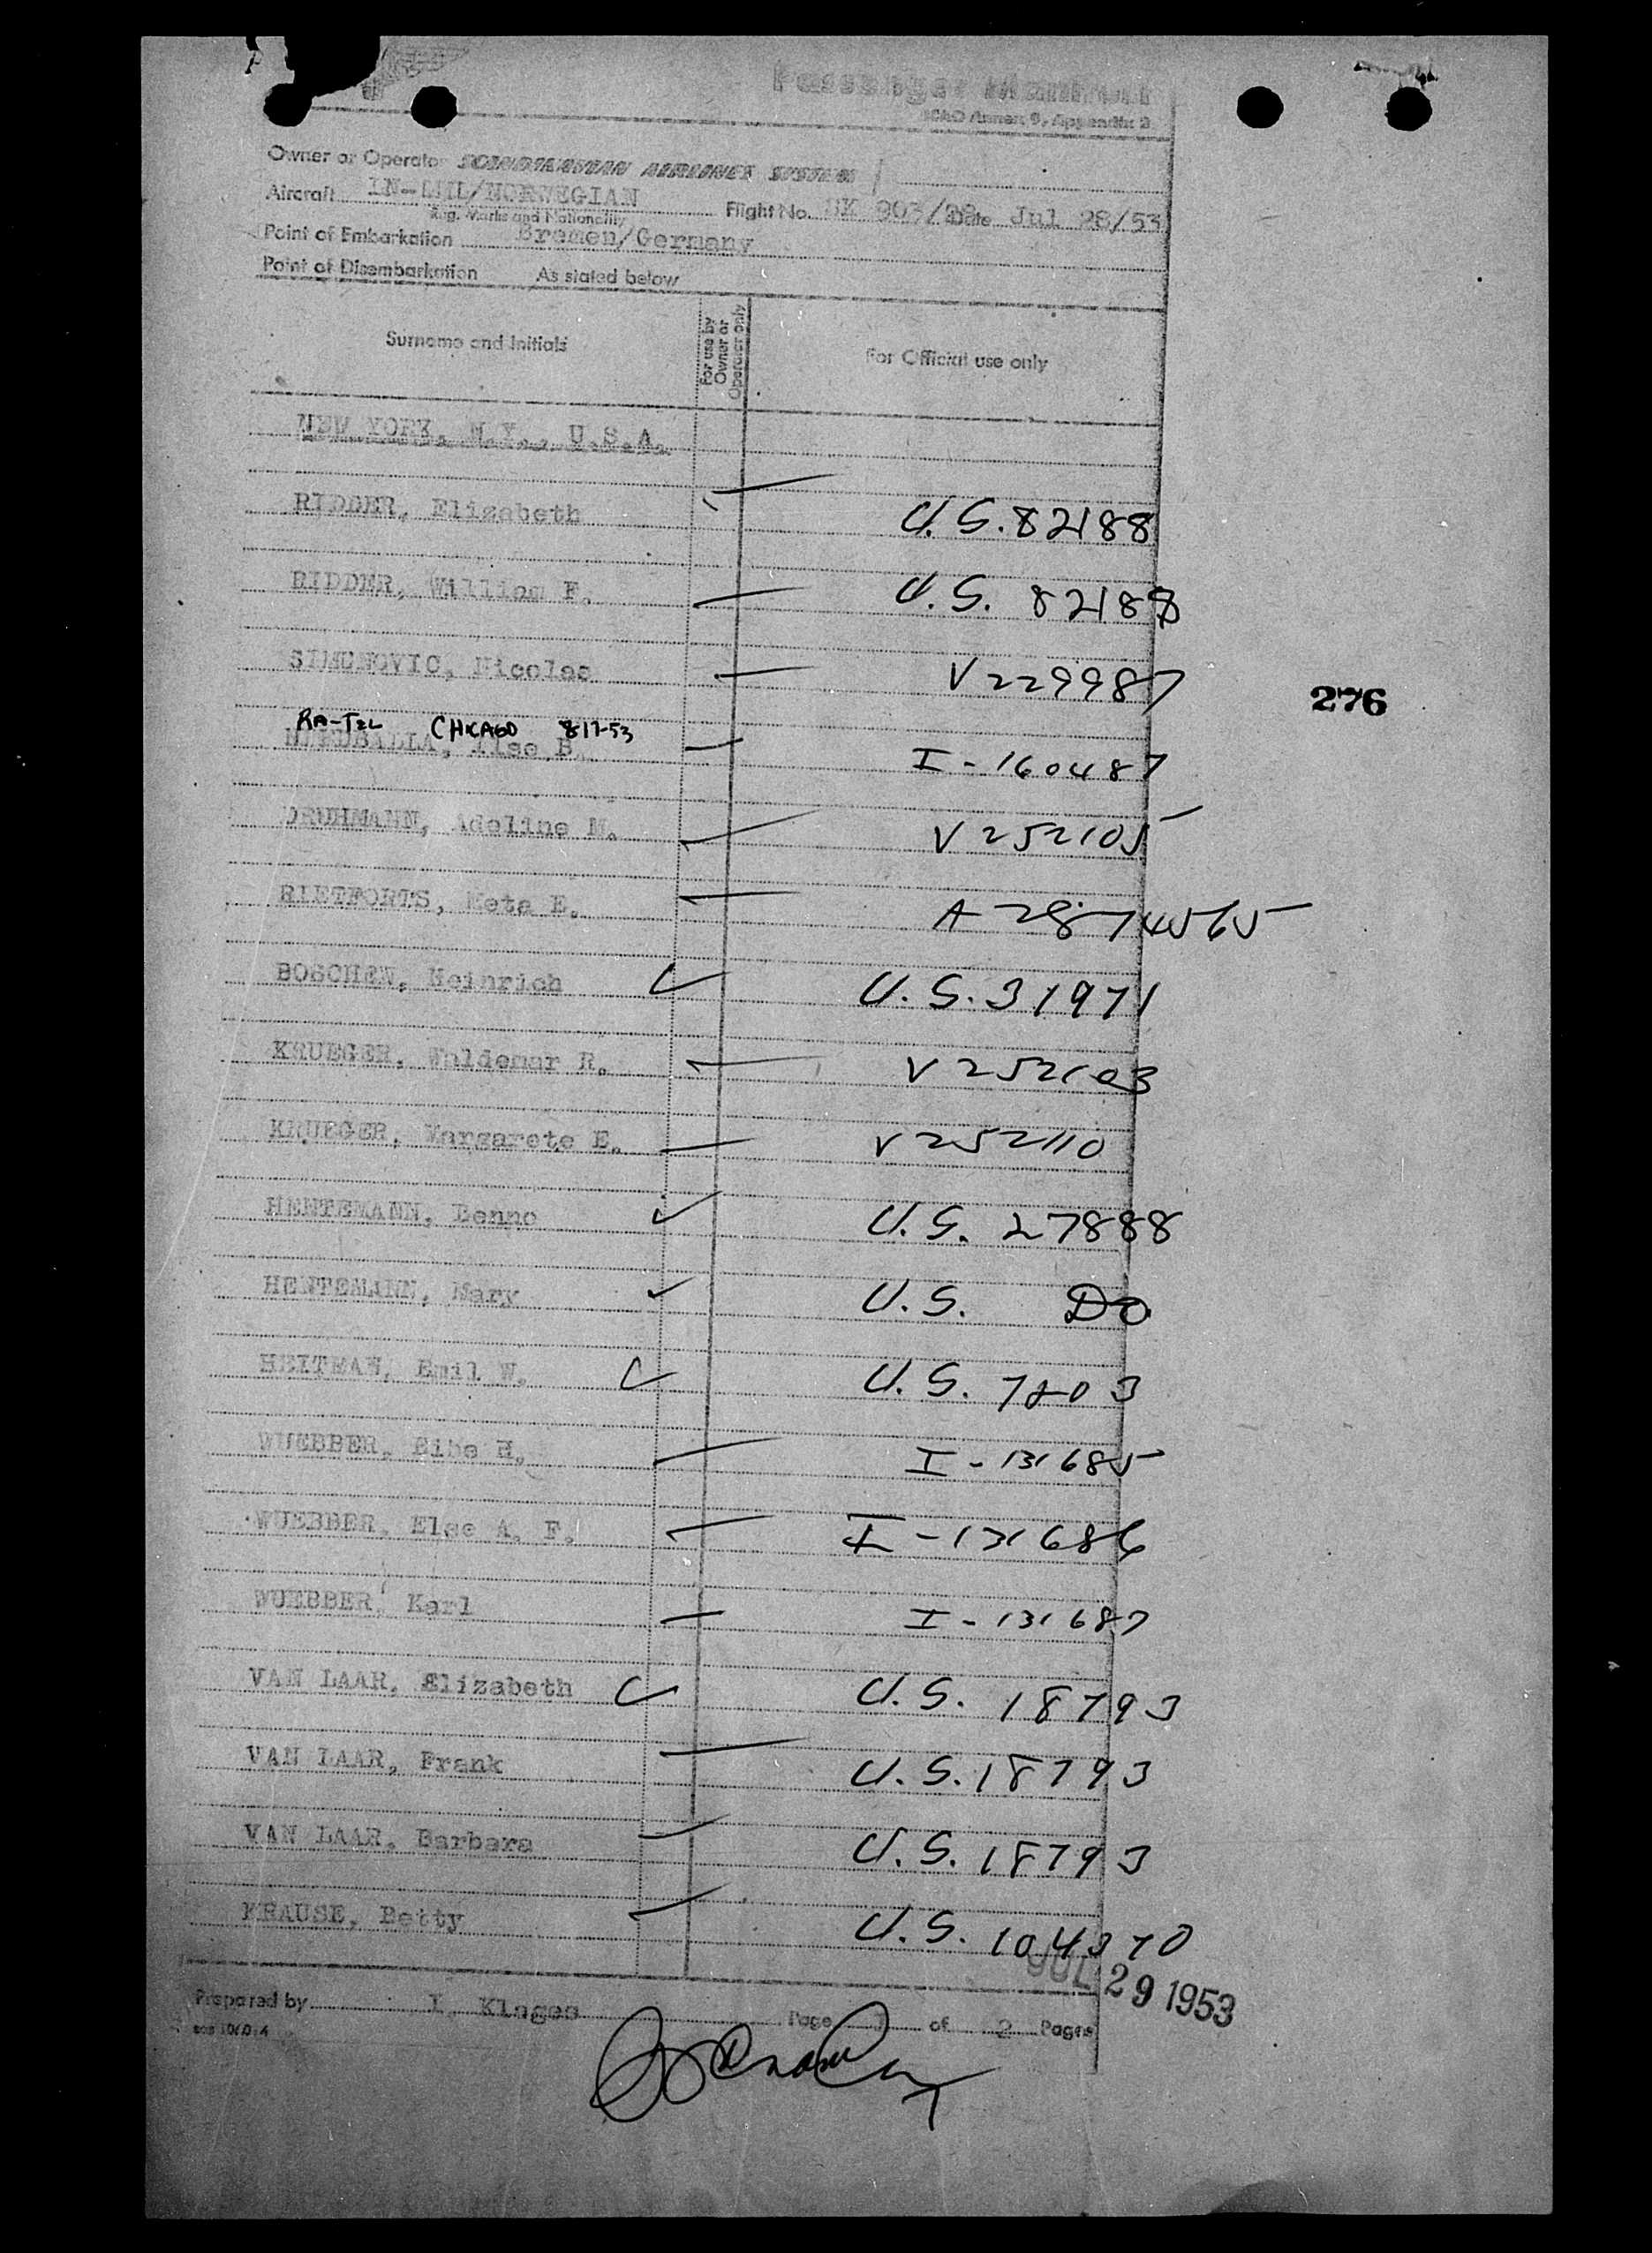 Passenger Manifest
ICAO Annex 9, Appendix 3
Owner or Operator SCANDINAVIAN AIRLINES SYSTEM
Aircraft IN-LML/NORWEGIAN Flight No. SK 903/28 Date Jul 28/53
Reg. Marks and Nationality
Point of Embarkation Bremen/Germany
Point of Disembarkation As stated below
Surname and Initials For use by Owner or Operator only For Official use only
NEW YORK, N.Y., U.S.A.
RIDDER, Elizabeth U.S. 82188
RIDDER, William F. U.S. 82188
SIMUNOVIC, Nicolas V229987
276
RA-TEL CHICAGO 8-17-53
Ilse B. I-160487
Adeline M. V252105
RIETFORTS, Meta E. A
BOSCHEN, Heinrich U.S. 31971
KRUEGER, Waldemar R. V252103
KRUEGER, Margarete E. V252110
HENTEMANN, Benno U.S. 27888
HENTEMANN, Mary U.S. DO
HEITMAN, Emil W. U.S. 7203
WUEBBER, Eibe H. I-131685
WUEBBER, Else A. F. I-131686
WUEBBER, Karl I-131687
VAN LAAR, Elizabeth U.S. 18793
VAN LAAR, Frank U.S. 18793
VAN LAAR, Barbara U.S. 18793
KRAUSE, Betty U.S. 104370
JUL 29 1953
Prepared by I. Klages Page 1 of 2 Pages